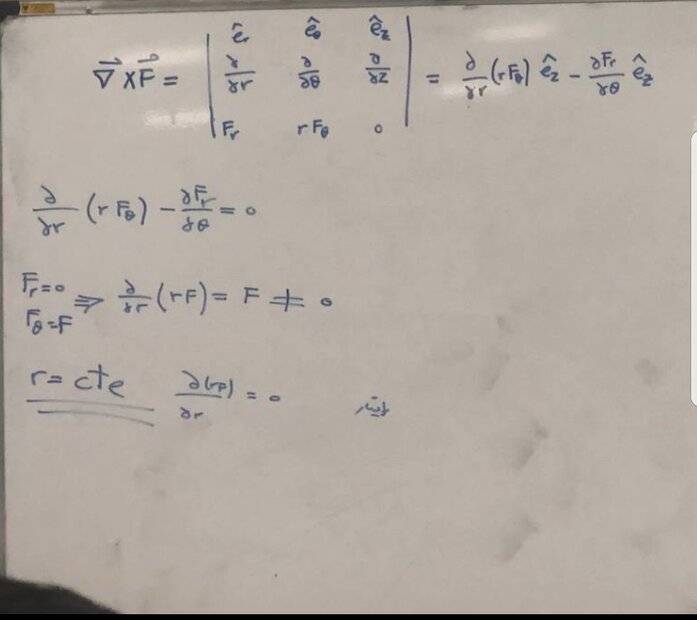 ∇⃗ × F⃗ = | ê_r ê_θ ê_z ; ∂/∂r ∂/∂θ ∂/∂z ; F_r rF_θ 0 | = ∂/∂r (rF_θ) ê_z − ∂F_r/∂θ ê_z
∂/∂r (r F_θ) − ∂F_r/∂θ = 0
F_r = 0
F_θ = F ⇒ ∂/∂r (rF) = F ≠ 0
r = cte ∂(rF)/∂r = 0